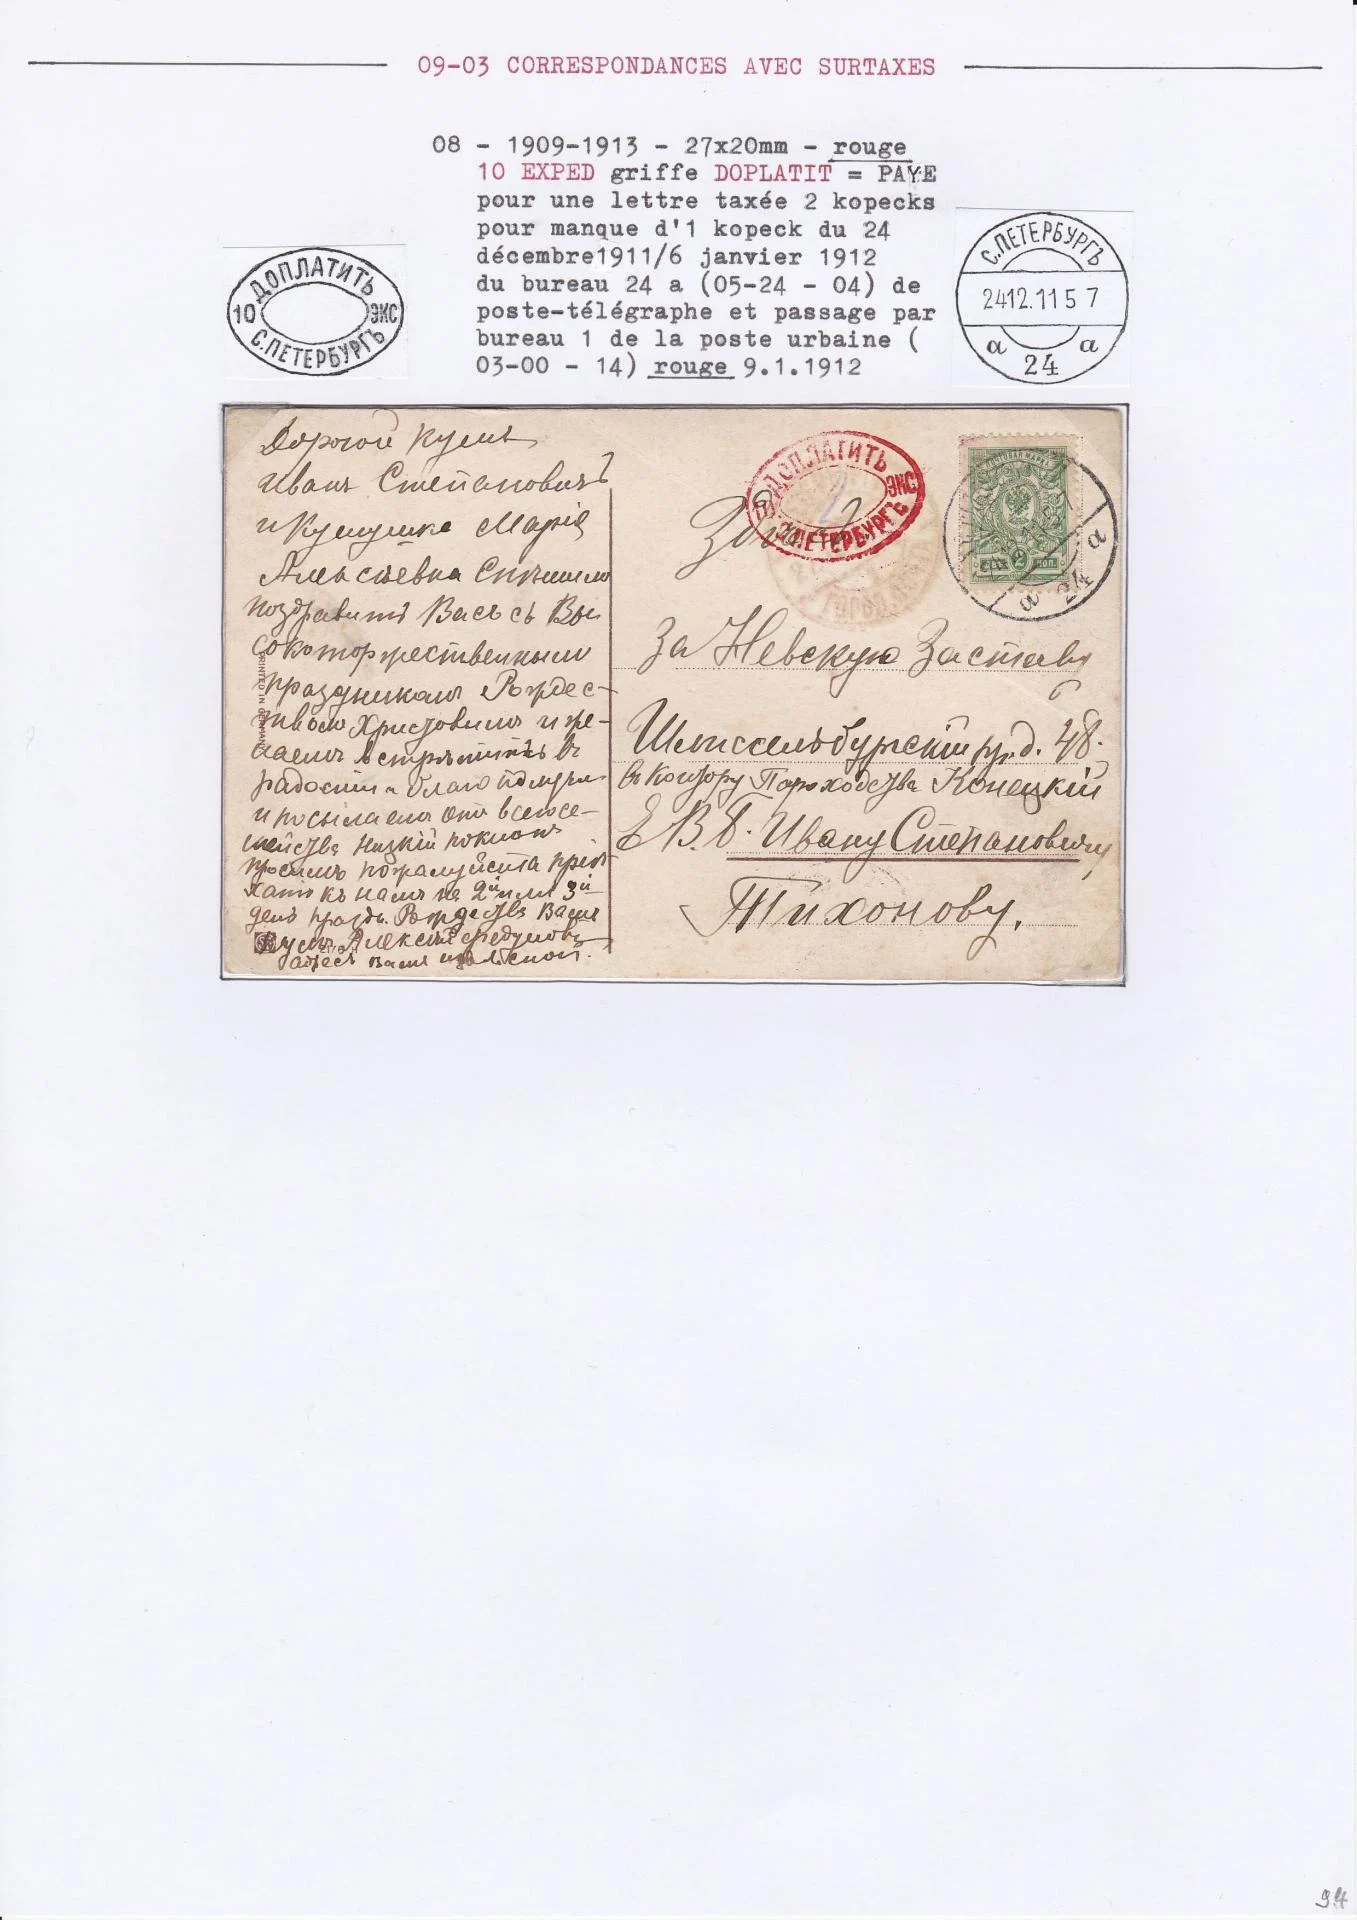 09-03 CORRESPONDANCES AVEC SURTAXES
08 - 1909-1913 - 27x20mm - rouge
10 EXPED griffe DOPLATIT = PAYE
pour une lettre taxée 2 kopecks
pour manque d'1 kopeck du 24
décembre1911/6 janvier 1912
du bureau 24 a (05-24 - 04) de
poste-télégraphe et passage par
bureau 1 de la poste urbaine (
03-00 - 14) rouge 9.1.1912
ДОПЛАТИТЬ
10 ЭКС
С.ПЕТЕРБУРГЪ
С.ПЕТЕРБУРГЪ
2412.11 5 7
а а
24
Дорогой Кумъ
Иванъ Степановичъ
и Кумушка Марія
Алексѣевна Спѣшимъ
поздравить Васъ съ Вы
сокоторжественнымъ
праздникомъ Рождес-
твомъ Христовымъ и же-
лаемъ встрѣтить въ
радости и благополучіи
и посылаемъ отъ всего се-
мейства низкій поклонъ
просимъ пожалуйста пріѣ-
хать къ намъ на 2й или 3й
день празд. Рождества Вашъ
Кумъ Алексѣй
адресъ Вамъ извѣстной.
PRINTED IN GERMANY
ДОПЛАТИТЬ
10 2 ЭКС
С.ПЕТЕРБУРГЪ
ГОРОД.
ПОЧТОВАЯ МАРКА
2 КОП.
а 24 а
Здѣсь
За Невскую Заставу
Шлиссельбургскій пр. д. 48.
въ контору Пароходства Конецкій
Е.В.Б. Ивану Степановичу
Тихонову.
94